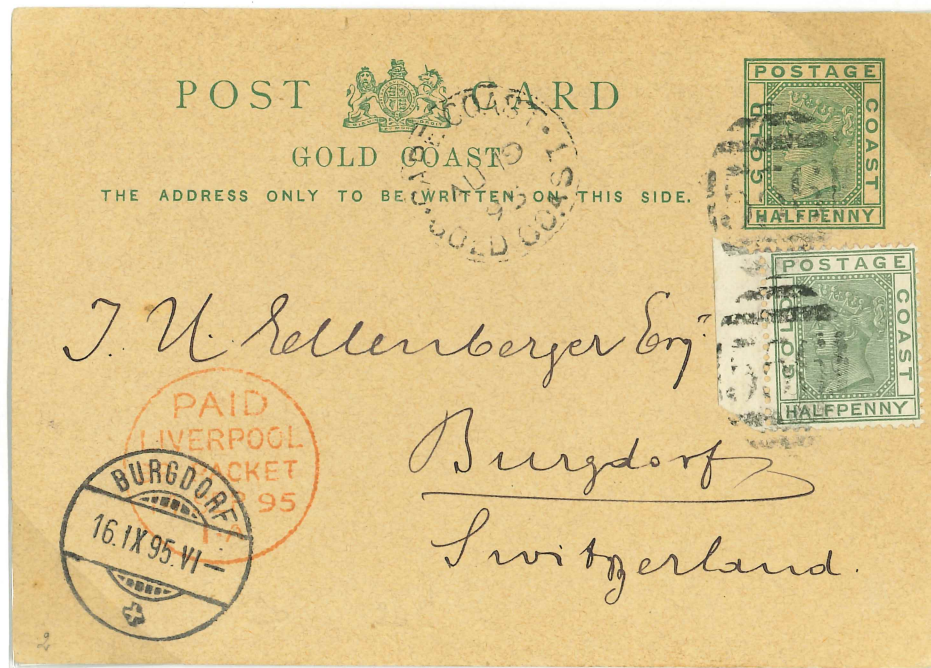 POST CARD
GOLD COAST
THE ADDRESS ONLY TO BE WRITTEN ON THIS SIDE.
POSTAGE
GOLD
COAST
HALFPENNY
COAST
GOLD COAST
AU
9
POSTAGE
GOLD
COAST
HALFPENNY
J. U. Gellenberger Esq.
Burgdorf
Switzerland.
PAID
LIVERPOOL
PACKET
95
BURGDORF
16.IX 95.VI–
2